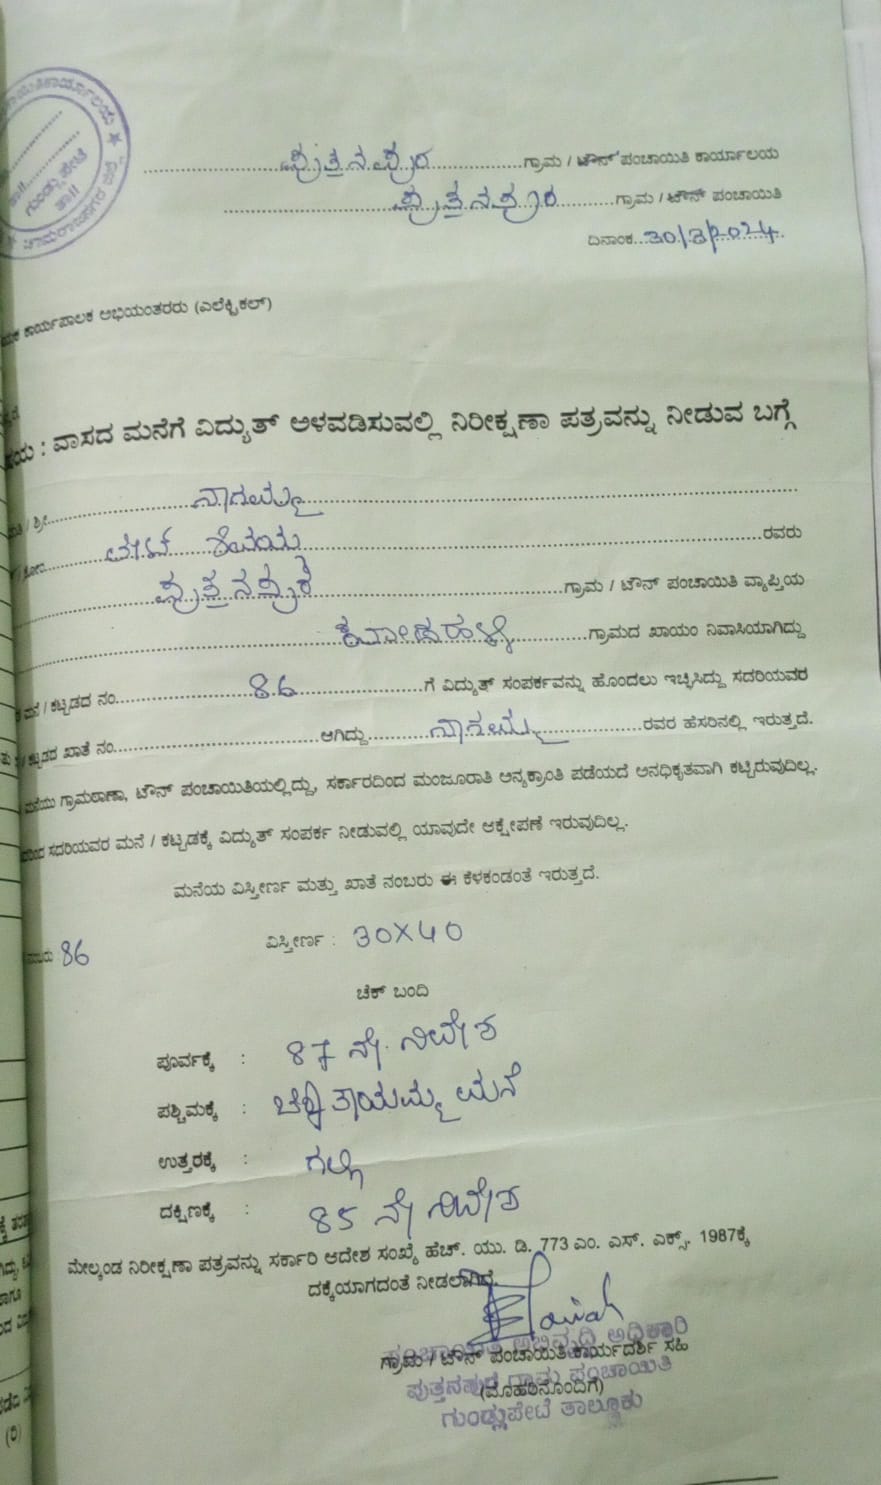 ಗುಂಡ್ಲುಪೇಟೆ ತಾ||
ಚಾಮರಾಜನಗರ ಜಿಲ್ಲೆ
ಪುತ್ತನಪುರ ಗ್ರಾಮ / ಟೌನ್ ಪಂಚಾಯಿತಿ ಕಾರ್ಯಾಲಯ
ಪುತ್ತನಪುರ ಗ್ರಾಮ / ಟೌನ್ ಪಂಚಾಯಿತಿ
ದಿನಾಂಕ 30/8/2024
ಕಾರ್ಯಪಾಲಕ ಅಭಿಯಂತರರು (ಎಲೆಕ್ಟ್ರಿಕಲ್)
: ವಾಸದ ಮನೆಗೆ ವಿದ್ಯುತ್ ಅಳವಡಿಸುವಲ್ಲಿ ನಿರೀಕ್ಷಣಾ ಪತ್ರವನ್ನು ನೀಡುವ ಬಗ್ಗೆ
/ ಶ್ರೀ ನಾಗಮ್ಮ
ಲೇಟ್ ಶಿವಯ್ಯ ರವರು
ಪುತ್ತನಪುರ ಗ್ರಾಮ / ಟೌನ್ ಪಂಚಾಯಿತಿ ವ್ಯಾಪ್ತಿಯ
ಗ್ರಾಮದ ಖಾಯಂ ನಿವಾಸಿಯಾಗಿದ್ದು
ಮನೆ / ಕಟ್ಟಡದ ನಂ 86 ಗೆ ವಿದ್ಯುತ್ ಸಂಪರ್ಕವನ್ನು ಹೊಂದಲು ಇಚ್ಛಿಸಿದ್ದು ಸದರಿಯವರ
/ ಕಟ್ಟಡದ ಖಾತೆ ನಂ ಆಗಿದ್ದು ನಾಗಮ್ಮ ರವರ ಹೆಸರಿನಲ್ಲಿ ಇರುತ್ತದೆ.
ಮನೆಯು ಗ್ರಾಮಠಾಣಾ, ಟೌನ್ ಪಂಚಾಯಿತಿಯಲ್ಲಿದ್ದು, ಸರ್ಕಾರದಿಂದ ಮಂಜೂರಾತಿ ಅನ್ಯಕ್ರಾಂತಿ ಪಡೆಯದೆ ಅನಧಿಕೃತವಾಗಿ ಕಟ್ಟಿರುವುದಿಲ್ಲ.
ಸದರಿಯವರ ಮನೆ / ಕಟ್ಟಡಕ್ಕೆ ವಿದ್ಯುತ್ ಸಂಪರ್ಕ ನೀಡುವಲ್ಲಿ ಯಾವುದೇ ಆಕ್ಷೇಪಣೆ ಇರುವುದಿಲ್ಲ.
ಮನೆಯ ವಿಸ್ತೀರ್ಣ ಮತ್ತು ಖಾತೆ ನಂಬರು ಈ ಕೆಳಕಂಡಂತೆ ಇರುತ್ತದೆ.
86 ವಿಸ್ತೀರ್ಣ : 30X40
ಚೆಕ್ ಬಂದಿ
ಪೂರ್ವಕ್ಕೆ : 87 ನೇ ನಿವೇಶ
ಪಶ್ಚಿಮಕ್ಕೆ : ಚಿಕ್ಕತಾಯಮ್ಮ ಮನೆ
ಉತ್ತರಕ್ಕೆ : ಗಲ್ಲಿ
ದಕ್ಷಿಣಕ್ಕೆ : 85 ನೇ ನಿವೇಶ
ಮೇಲ್ಕಂಡ ನಿರೀಕ್ಷಣಾ ಪತ್ರವನ್ನು ಸರ್ಕಾರಿ ಆದೇಶ ಸಂಖ್ಯೆ ಹೆಚ್. ಯು. ಡಿ. 773 ಎಂ. ಎಸ್. ಎಕ್ಸ್. 1987ಕ್ಕೆ
ದಕ್ಕೆಯಾಗದಂತೆ ನೀಡಲಾಗಿದೆ.
ಪಂಚಾಯಿತಿ ಅಭಿವೃದ್ಧಿ ಅಧಿಕಾರಿ
ಗ್ರಾಮ / ಟೌನ್ ಪಂಚಾಯಿತಿ ಕಾರ್ಯದರ್ಶಿ ಸಹಿ
ಪುತ್ತನಪುರ ಗ್ರಾಮ ಪಂಚಾಯಿತಿ
(ಮೊಹರಿನೊಂದಿಗೆ)
ಗುಂಡ್ಲುಪೇಟೆ ತಾಲ್ಲೂಕು